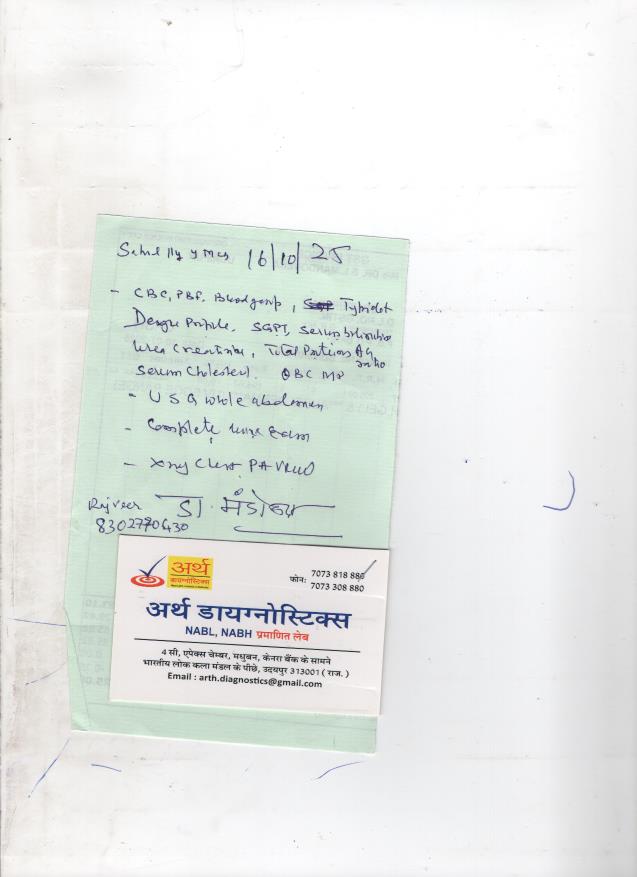 16/10/25
- CBC, PBF, Blood group, Typhidot
Dengue Profile, SGPT, Serum bilirubin
Urea Creatinine, Total Protiens AG
ratio
Serum Cholesterol. QBC MP
- USG whole abdomen
- Complete urine Exam
- Xray Chest PA View
Rajveer डा. मंडोवरा
8302770430
अर्थ
डायग्नोस्टिक्स
फोन: 7073 818 880
7073 308 880
अर्थ डायग्नोस्टिक्स
NABL, NABH प्रमाणित लेब
4 सी, एपेक्स चेम्बर, मधुबन, केनरा बैंक के सामने
भारतीय लोक कला मंडल के पीछे, उदयपुर 313001 ( राज. )
Email : arth.diagnostics@gmail.com